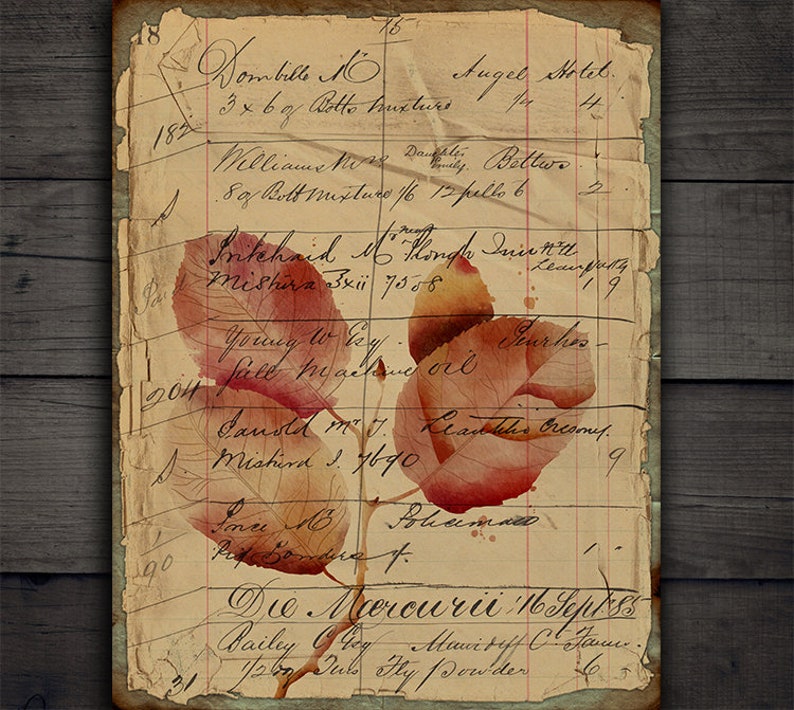 18 15
Dombille Mr Angel Hotel.
3 x 6 oz Botts Mixture 1/2 4
182
Williams Mrs Daughter Emily Bettws
.8 oz Bott Mixture 1/6 12 pills 6 2
Pritchard Mr Plough Inn
Mistura ℥xii 7508 1 9
Young W Esq. Penrhos-
Gall Machine oil
204
Jarrold Mr J.
Mistura J. 7690 9
Price Mr Policeman
Pig Powders 1
90
Die Mercurii '16 Sept. 85
Bailey C Esq C. Farm
1/2 Tins Fly powder 6
31